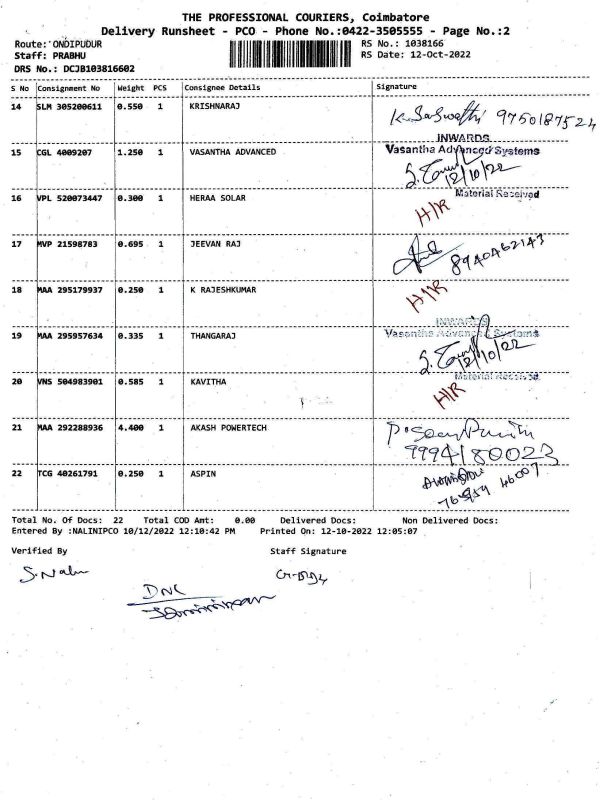 THE PROFESSIONAL COURIERS, Coimbatore
Delivery Runsheet - PCO - Phone No.:0422-3505555 - Page No.:2
Route: ONDIPUDUR
RS No.: 1038166
Staff: PRABHU
RS Date: 12-Oct-2022
DRS No.: DCJB103816602
S No Consignment No Weight PCS Consignee Details Signature
14 SLM 305200611 0.550 1 KRISHNARAJ
9750187524
INWARDS
15 CGL 4009207 1.250 1 VASANTHA ADVANCED Vasantha Advanced Systems
12/10/22
Material Received
16 VPL 520073447 0.300 1 HERAA SOLAR H/R
17 MVP 21598783 0.695 1 JEEVAN RAJ 8940462143
18 MAA 295179937 0.250 1 K RAJESHKUMAR H/R
INWARDS
19 MAA 295957634 0.335 1 THANGARAJ Vasantha Advanced Systems
12/10/22
Material Received
20 VNS 504983901 0.585 1 KAVITHA H/R
21 MAA 292288936 4.400 1 AKASH POWERTECH
9994180023
22 TCG 40261791 0.250 1 ASPIN
Total No. Of Docs: 22 Total COD Amt: 0.00 Delivered Docs: Non Delivered Docs:
Entered By :NALINIPCO 10/12/2022 12:10:42 PM Printed On: 12-10-2022 12:05:07
Verified By Staff Signature